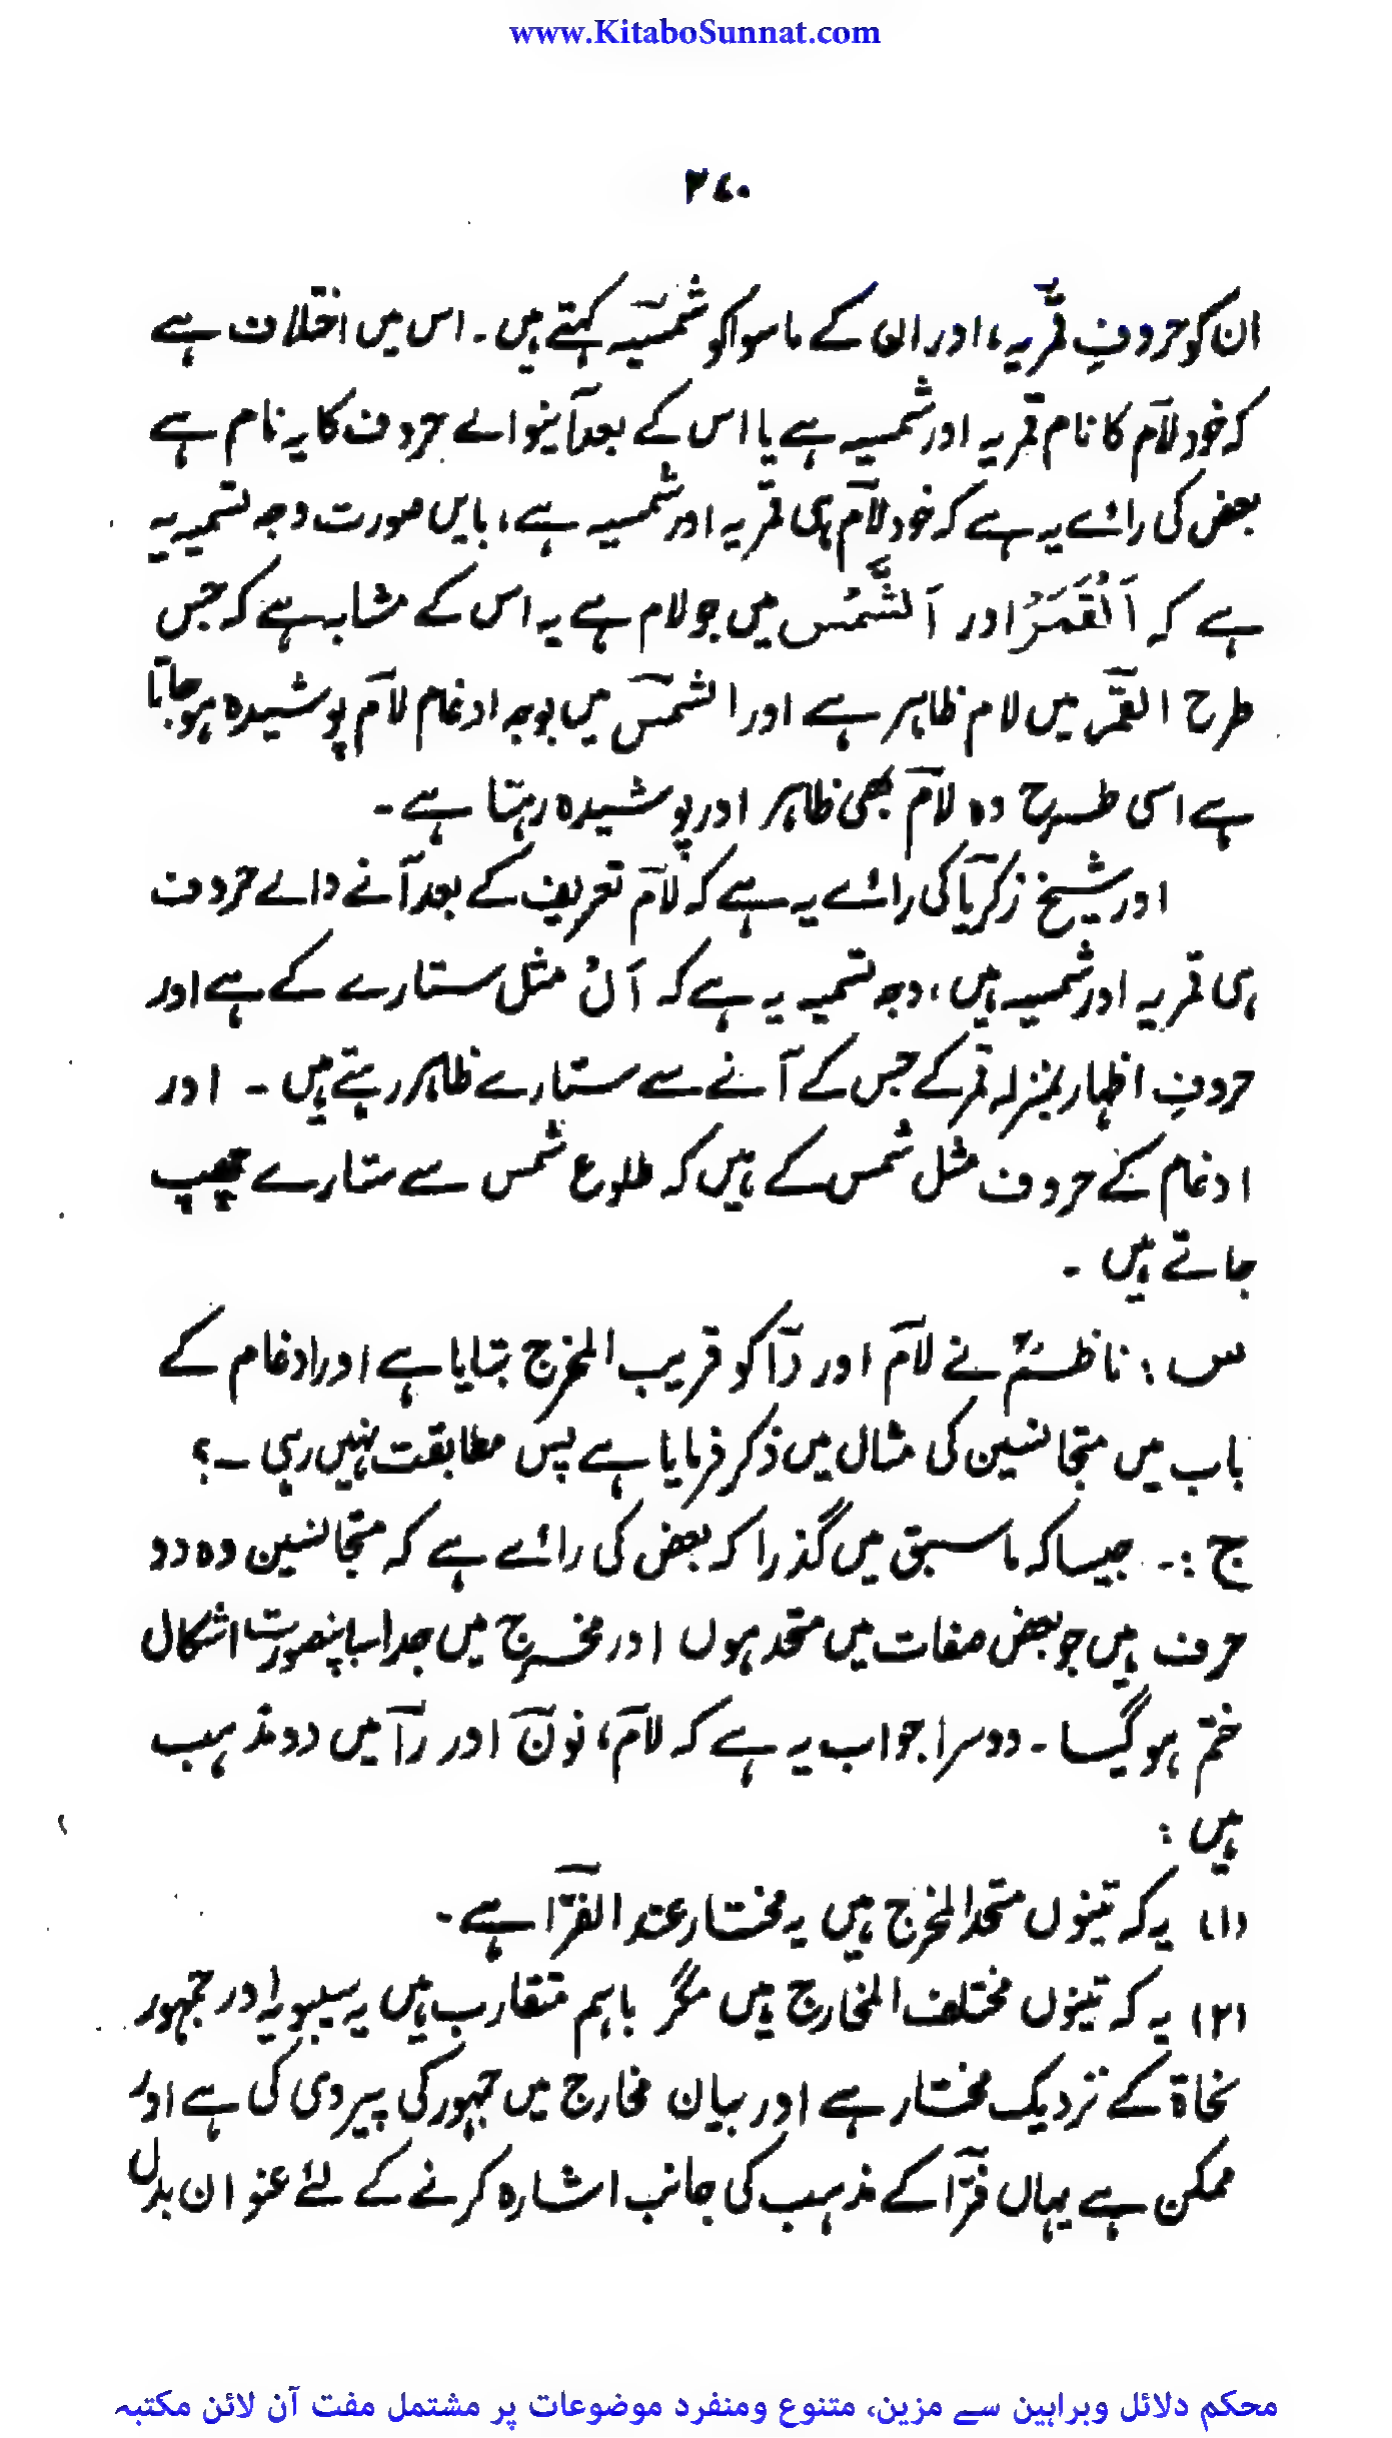 www.KitaboSunnat.com
۲۷۰
ان کو حروفِ قمریہ، اور ان کے ماسوا کو شمسیہ کہتے ہیں۔ اس میں اختلاف ہے
کہ خود لآم کا نام قمریہ اور شمسیہ ہے یا اس کے بعد آنیوالے حروف کا یہ نام ہے
بعض کی رائے یہ ہے کہ خود لآم ہی قمریہ اور شمسیہ ہے، بایں صورت وجہ تسمیہ یہ
ہے کہ اَلْقَمَرُ اور اَلشَّمْس میں جو لام ہے یہ اس کے مشابہ ہے کہ جس
طرح القمر میں لام ظاہر ہے اور الشمس میں بوجہ ادغام لآم پوشیدہ ہوجاتا
ہے اسی طرح وہ لآم بھی ظاہر اور پوشیدہ رہتا ہے۔
اور شیخ زکریا کی رائے یہ ہے کہ لآم تعریف کے بعد آنے والے حروف
ہی قمریہ اور شمسیہ ہیں، وجہ تسمیہ یہ ہے کہ اَلْ مثل ستارے کے ہے اور
حروفِ اظہار بمنزلہ قمر کے جس کے آنے سے ستارے ظاہر رہتے ہیں۔ اور
ادغام کے حروف مثل شمس کے ہیں کہ طلوع شمس سے ستارے چھپ
جاتے ہیں۔
س: ناظمؒ نے لآم اور رآ کو قریب المخرج بتایا ہے اور ادغام کے
باب میں متجانسین کی مثال میں ذکر فرمایا ہے پس مطابقت نہیں رہی۔؟
ج:۔ جیسا کہ ماسبق میں گذرا کہ بعض کی رائے ہے کہ متجانسین وہ دو
حرف ہیں جو بعض صفات میں متحد ہوں اور مخرج میں جدا سب اینصورت اشکال
ختم ہوگیا۔ دوسرا جواب یہ ہے کہ لآم، نون اور رآ میں دو مذہب
ہیں:
(۱) یہ کہ تینوں متحد المخرج ہیں یہ مختار عند الفرّا ہے۔
(۲) یہ کہ تینوں مختلف المخارج ہیں مگر باہم متقارب ہیں یہ سیبویہ اور جمہور
نحاۃ کے نزدیک مختار ہے اور بیان مخارج میں جمہور کی پیروی کی ہے اور
ممکن ہے یہاں فرّا کے مذہب کی جانب اشارہ کرنے کے لئے عنوان بدل
محکم دلائل وبراہین سے مزین، متنوع ومنفرد موضوعات پر مشتمل مفت آن لائن مکتبہ